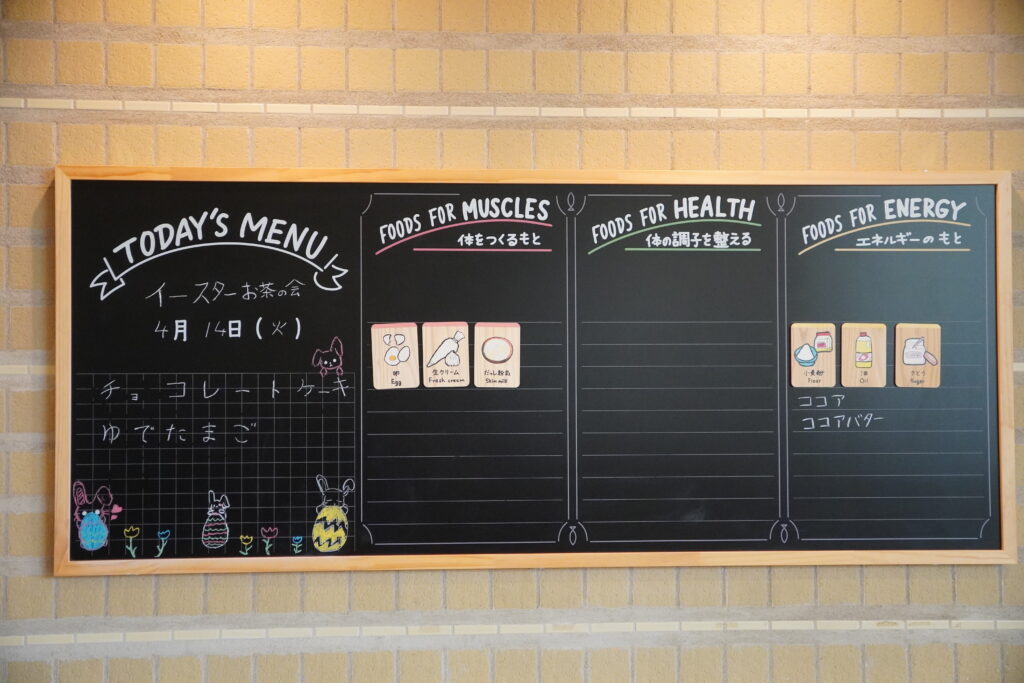 TODAY'S MENU
イースターお茶の会
4月 14日(火)
チョコレートケーキ
ゆでたまご
FOODS FOR MUSCLES
体をつくるもと
卵
Egg
生クリーム
Fresh cream
だっし粉乳
Skim milk
FOODS FOR HEALTH
体の調子を整える
FOODS FOR ENERGY
エネルギーのもと
小麦粉
Flour
油
Oil
さとう
Sugar
ココア
ココアバター